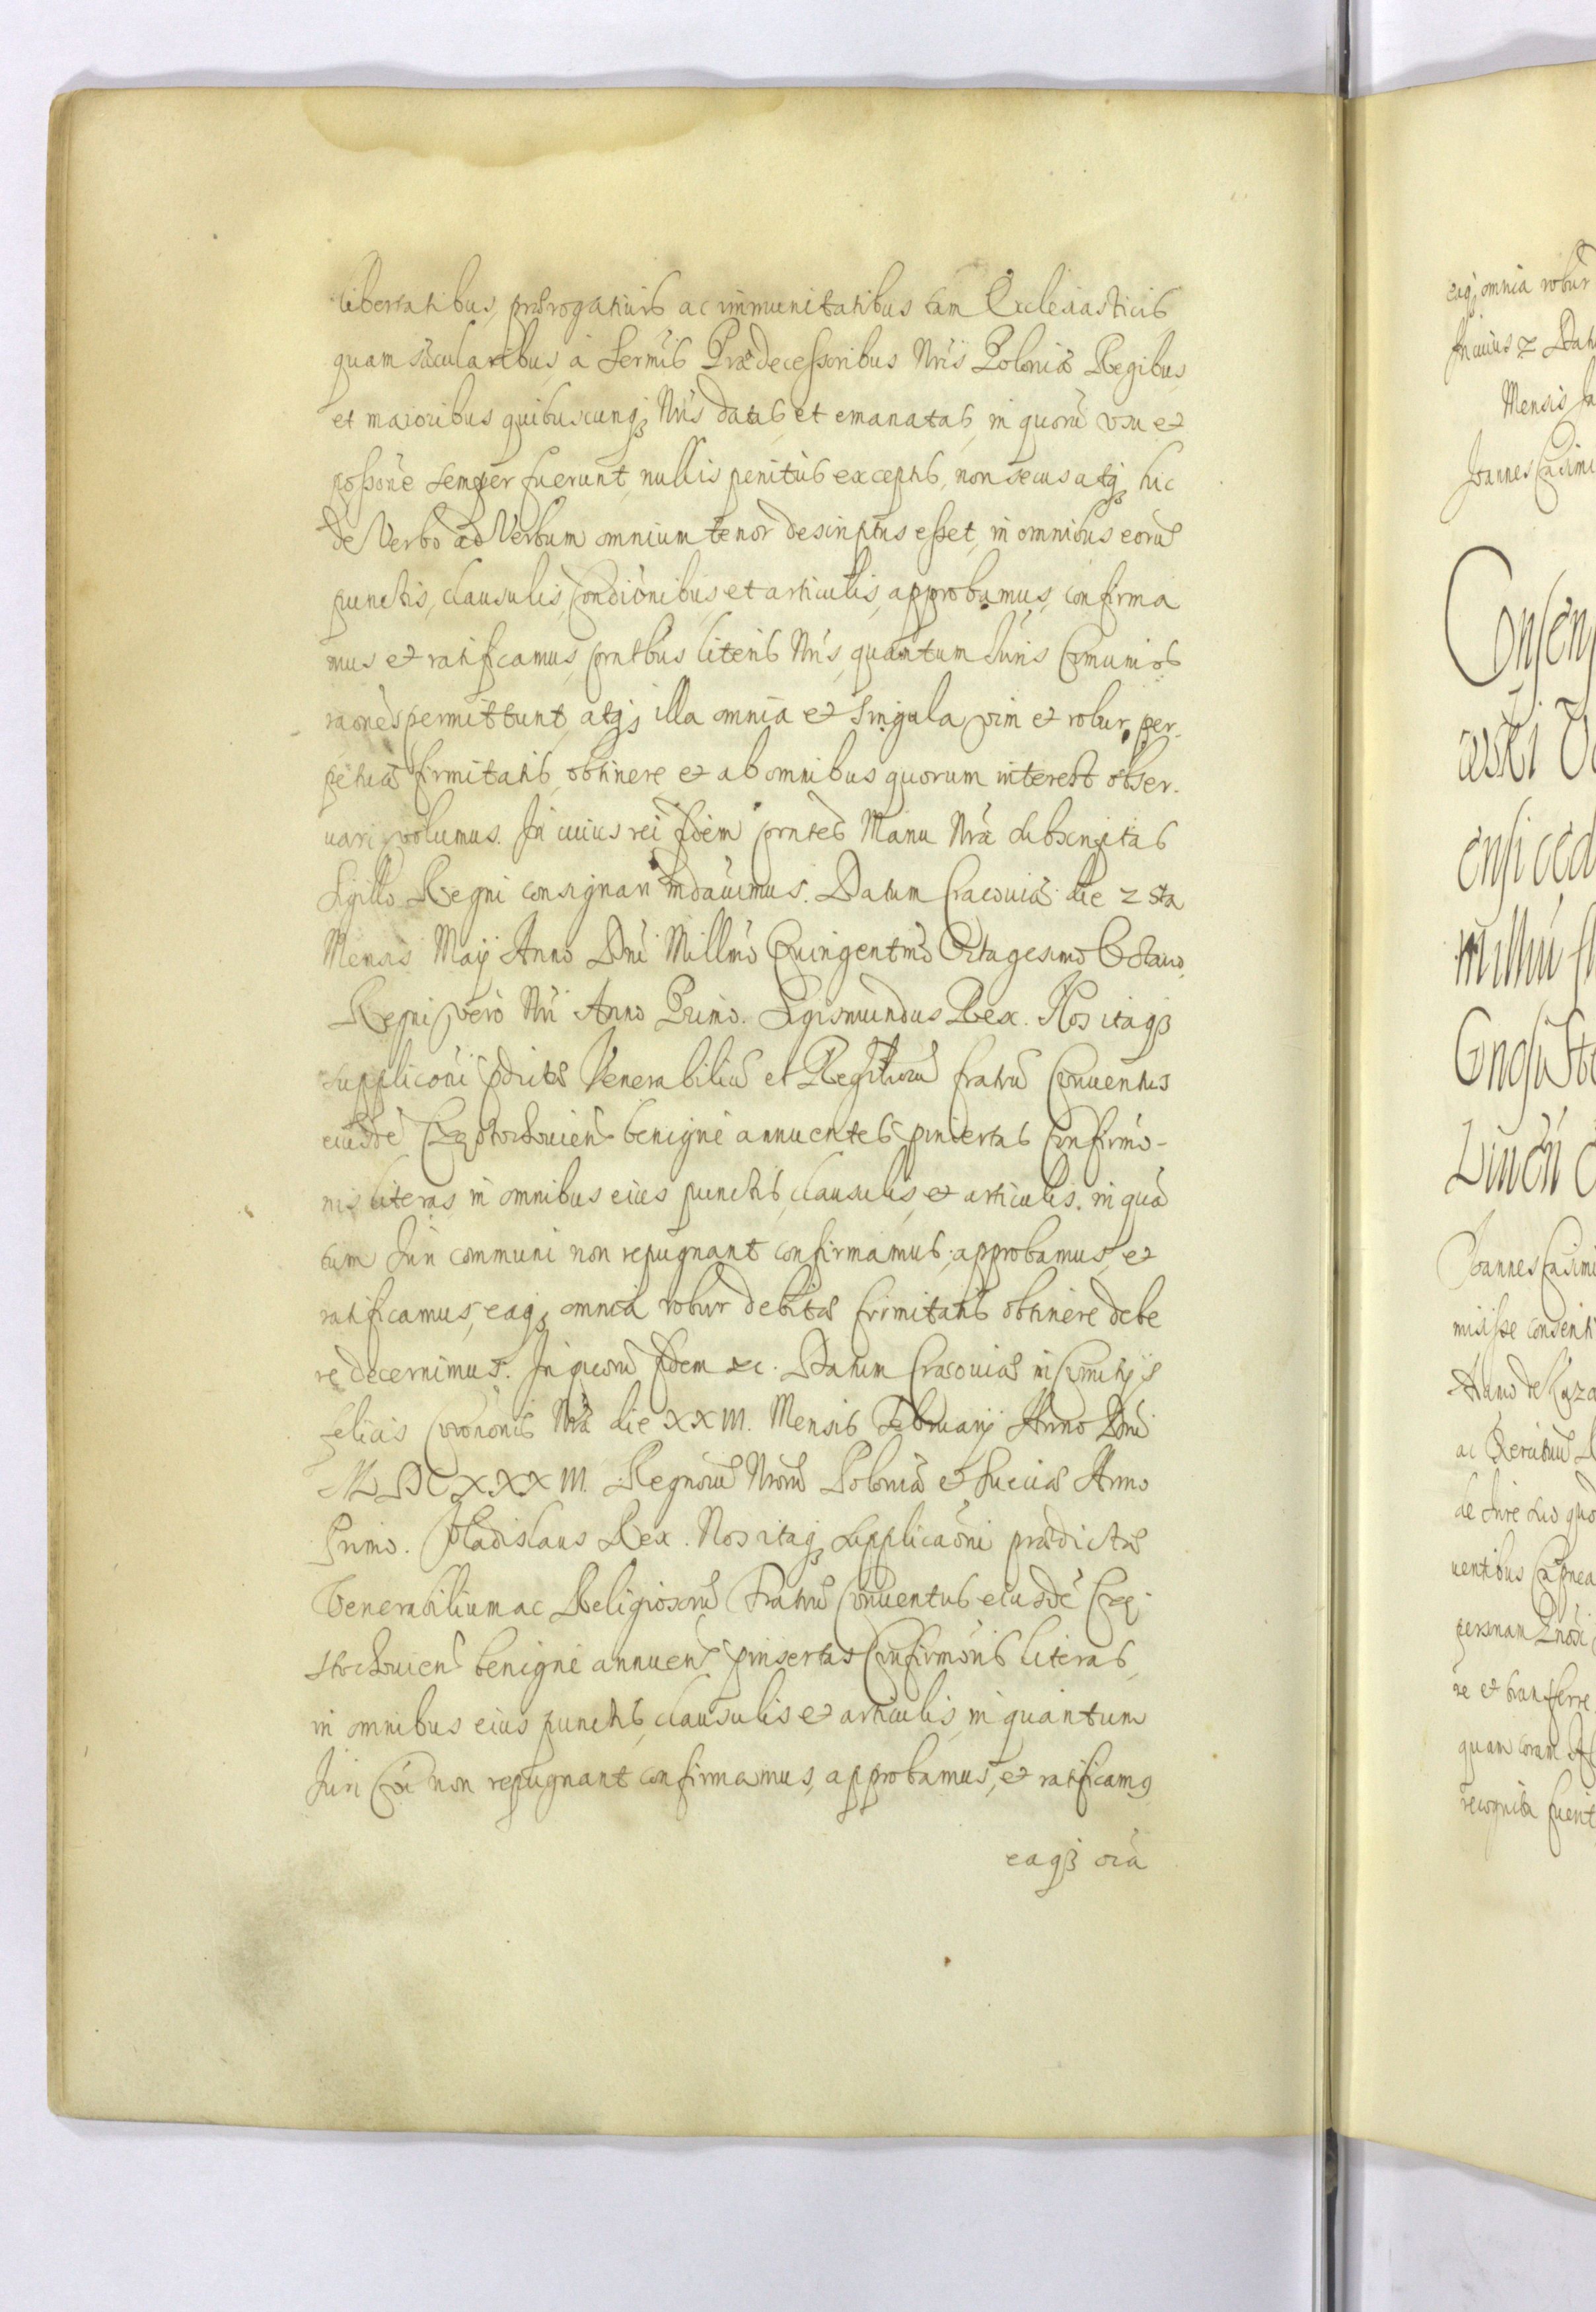 libertatibus, prærogatiuis ac immunitatibus tam Ecclesiasticis
quam sæcularibus, à Sermis Prædecessoribus Nris Poloniæ Regibus
et maioribus quibuscunq; Nris datas et emanatas, in quorũ vsu et
possone semper fuerunt, nullis penitùs exceptis, non secus atq; hic
de Verbo ad Verbum omnium tenor descriptus esset, in omnibus eorũ
punctis, clausulis, Condiõnibus et articulis, approbamus, confirma
mus et ratificamus, pntibus literis Nris, quantum Juris Comunis
raones permittunt, atq; illa omnia et singula vim et robur per-
petuæ firmitatis obtinere et ab omnibus quorum interest obser-
uari volumus. In cuius rei fidem pntes Manu Nrã subscriptas
Sigillo Regni consignari mdauimus. Datum Cracouiæ die 2 sta
Mensis Maij Anno Dni Millmo Quingentmo Octagesimo Octauo,
Regni vero Nri Anno Primo. Sigismundus Rex. Nos itaq;
supplicõni pdictæ Venerabiliũ et Regiliorũ fratrũ Conuentus
eiusdẽ Czestochouien̄ benignè annuentes, pinsertas Confirmõ-
nis literas in omnibus eius punctis, clausulis, et articulis, in quã
tum Juri communi non repugnant confirmamus, approbamus, et
ratificamus, eaq; omnia robur debitæ firmitatis obtinere debe
re decernimus. In quorũ fidem &c. Datum Cracouiæ in Comitijs
felicis Coronõnis Nrã die XXIII. Mensis Februarij Anno Dni
MDCXXXIII. Regnorũ Nrorũ Poloniæ et Sueciæ Anno
Primo. Vladislaus Rex. Nos itaq; supplicaõni prædictæ
Venerabilium ac Religiosorũ Fratrũ Conuentus eiusdẽ Czę-
stochouien̄ benignè annuen̄ pinsertas Confirmõnis literas,
in omnibus eius punctis, clausulis et articulis, in quantum
Juri Cõi non repugnant confirmamus, approbamus, et ratificamq
eaq; oia
eaq; omnia robur
In cuius
Mensis
Joannes Casimi
Consen
millũ
Joannes Casimi
misisse consenti
de Jure suo quo
uentibus
re et transferre
quam coram
recognita fuerit